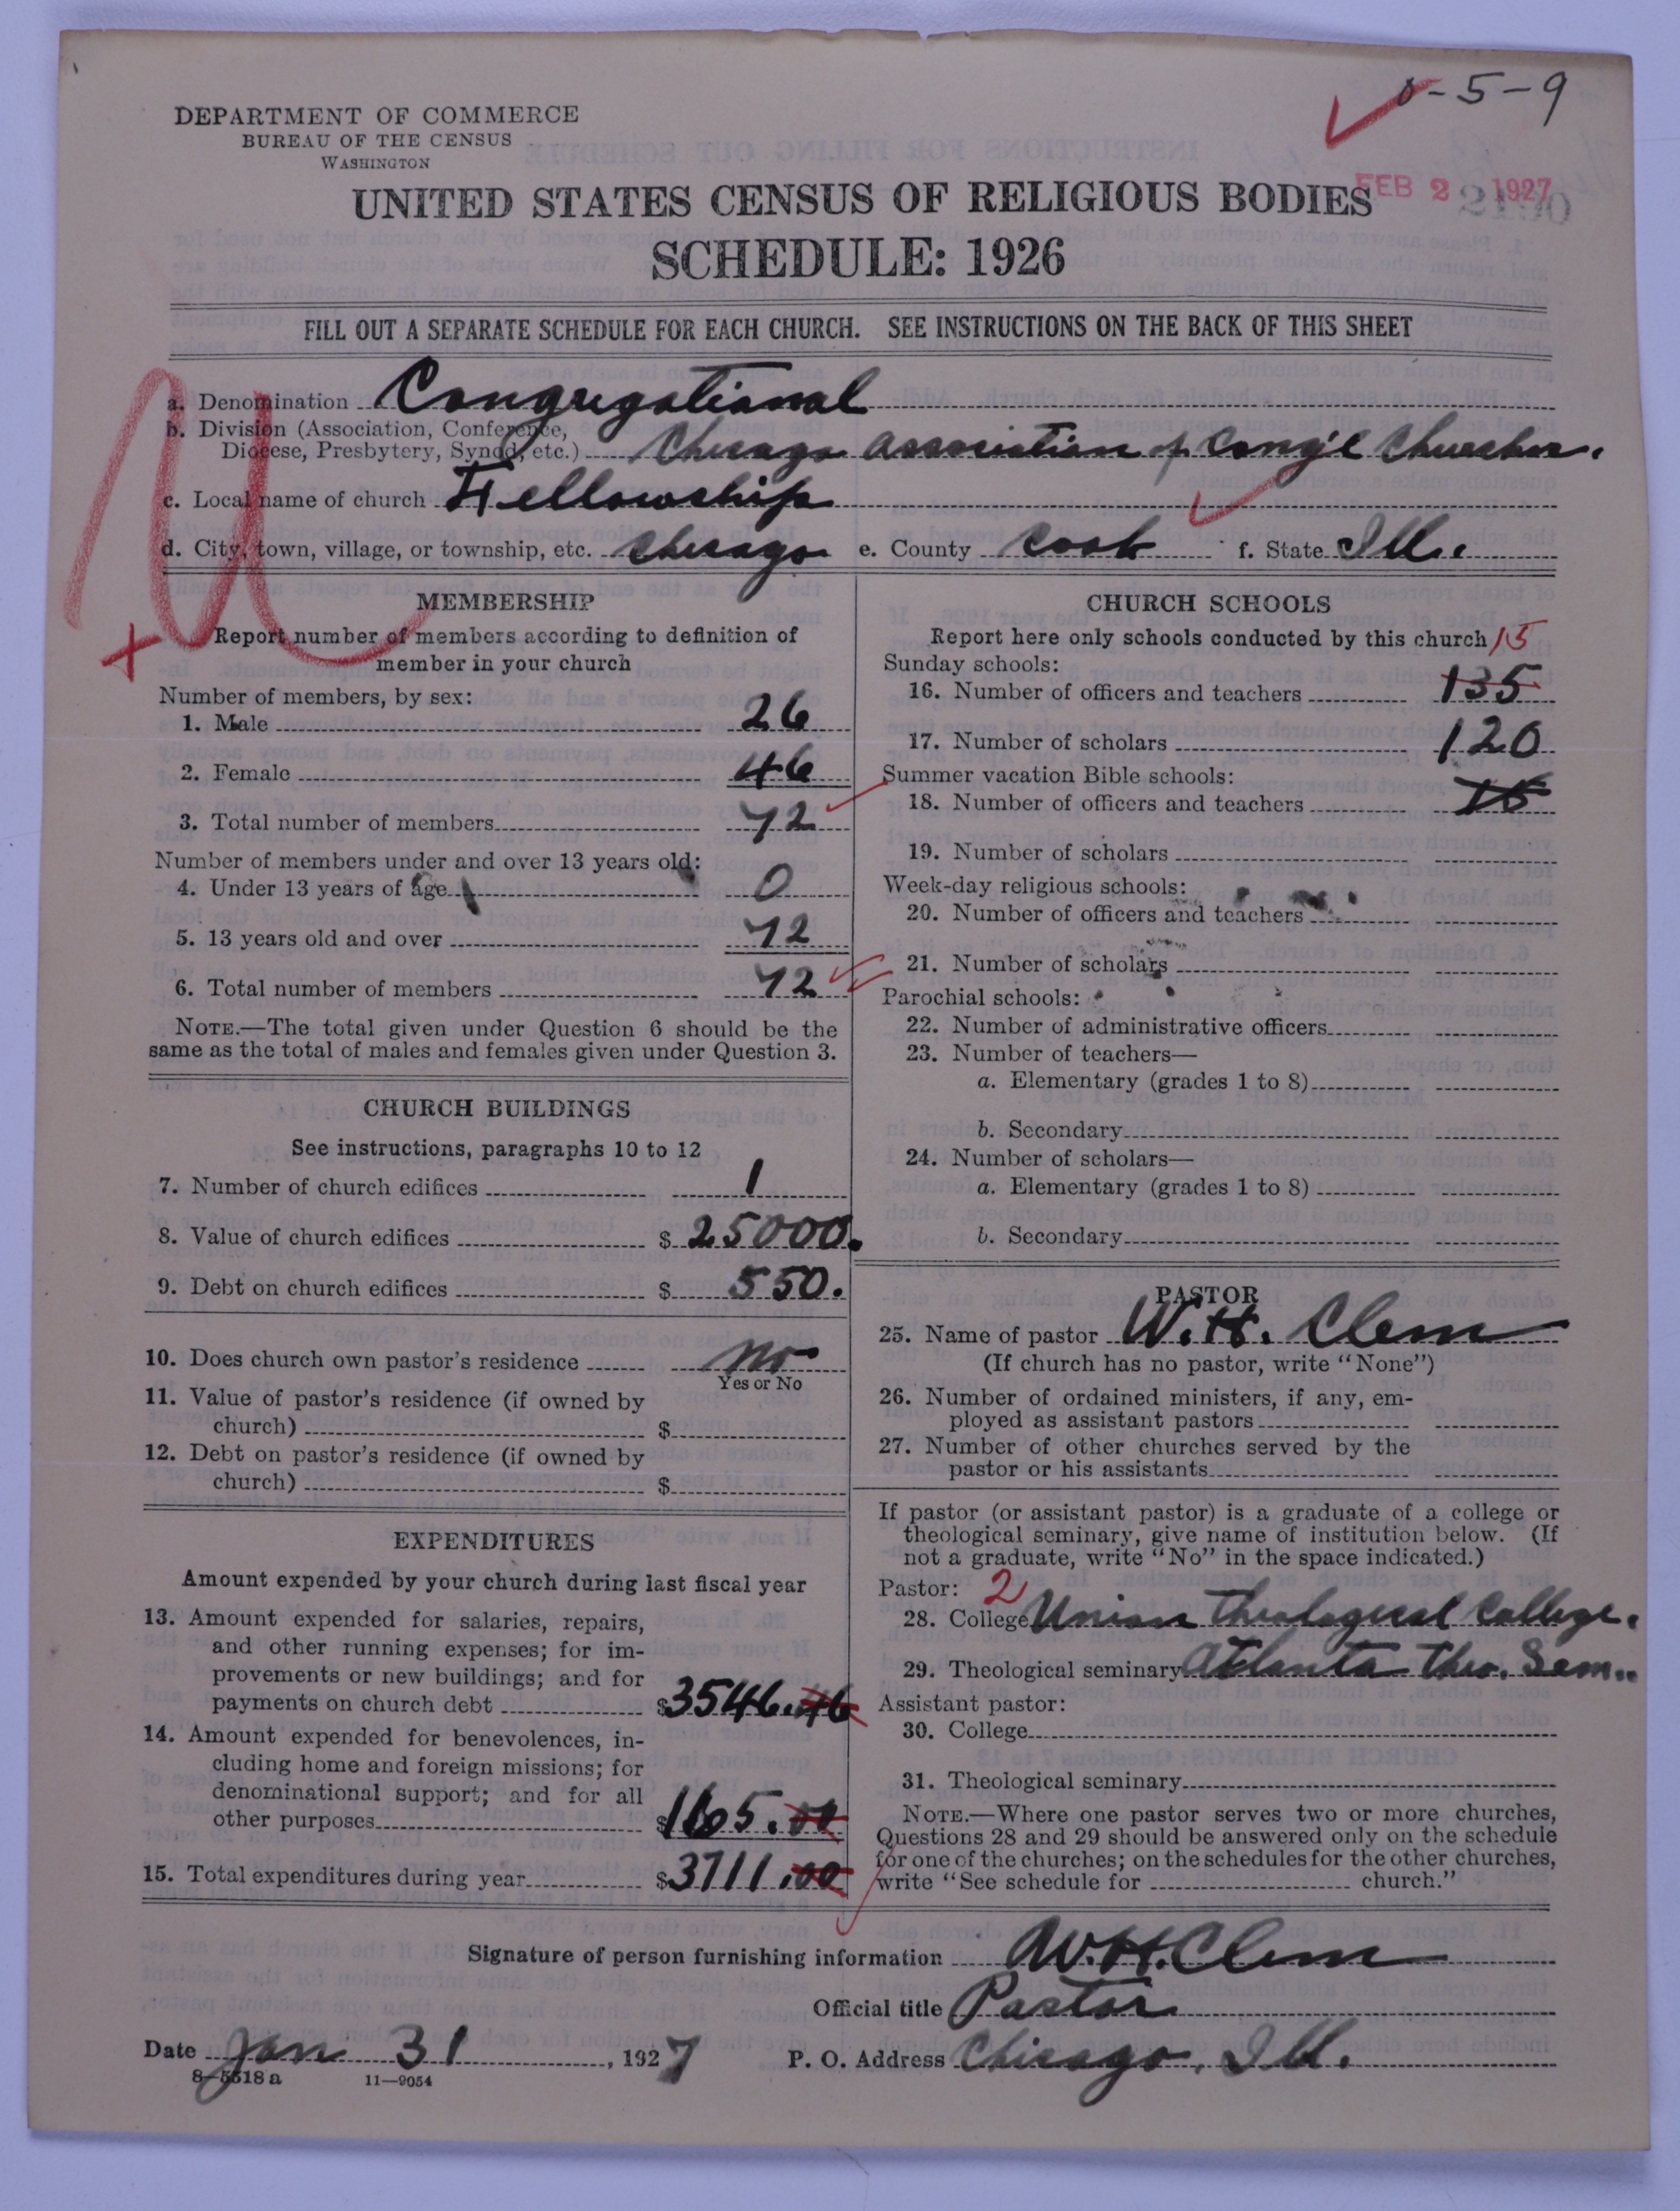 0-5-9
DEPARTMENT OF COMMERCE
BUREAU OF THE CENSUS
WASHINGTON
FEB 2 1927
UNITED STATES CENSUS OF RELIGIOUS BODIES
SCHEDULE: 1926
FILL OUT A SEPARATE SCHEDULE FOR EACH CHURCH. SEE INSTRUCTIONS ON THE BACK OF THIS SHEET
a. Denomination Congregational
b. Division (Association, Conference,
Diocese, Presbytery, Synod, etc.) Chicago Association of Cong'l Churches.
c. Local name of church Fellowship
d. City, town, village, or township, etc. Chicago e. County Cook f. State Ill.
MEMBERSHIP
Report number of members according to definition of
member in your church
Number of members, by sex:
1. Male 26
2. Female 46
3. Total number of members 72
Number of members under and over 13 years old:
4. Under 13 years of age 0
5. 13 years old and over 72
6. Total number of members 72
NOTE.—The total given under Question 6 should be the
same as the total of males and females given under Question 3.
CHURCH BUILDINGS
See instructions, paragraphs 10 to 12
7. Number of church edifices 1
8. Value of church edifices $ 25000.
9. Debt on church edifices $ 550.
10. Does church own pastor's residence no
Yes or No
11. Value of pastor's residence (if owned by
church) $
12. Debt on pastor's residence (if owned by
church) $
EXPENDITURES
Amount expended by your church during last fiscal year
13. Amount expended for salaries, repairs,
and other running expenses; for im-
provements or new buildings; and for
payments on church debt $3546.46
14. Amount expended for benevolences, in-
cluding home and foreign missions; for
denominational support; and for all
other purposes $165.00
15. Total expenditures during year $3711.00
CHURCH SCHOOLS
Report here only schools conducted by this church 15
Sunday schools:
16. Number of officers and teachers 135
17. Number of scholars 120
Summer vacation Bible schools:
18. Number of officers and teachers 15
19. Number of scholars
Week-day religious schools:
20. Number of officers and teachers
21. Number of scholars
Parochial schools:
22. Number of administrative officers
23. Number of teachers—
a. Elementary (grades 1 to 8)
b. Secondary
24. Number of scholars—
a. Elementary (grades 1 to 8)
b. Secondary
PASTOR
25. Name of pastor W. H. Clem
(If church has no pastor, write "None")
26. Number of ordained ministers, if any, em-
ployed as assistant pastors
27. Number of other churches served by the
pastor or his assistants
If pastor (or assistant pastor) is a graduate of a college or
theological seminary, give name of institution below. (If
not a graduate, write "No" in the space indicated.)
Pastor: 2
28. College Union Theological College.
29. Theological seminary Atlanta Theo. Sem.
Assistant pastor:
30. College
31. Theological seminary
NOTE.—Where one pastor serves two or more churches,
Questions 28 and 29 should be answered only on the schedule
for one of the churches; on the schedules for the other churches,
write "See schedule for church."
Signature of person furnishing information W. H. Clem
Official title Pastor
Date Jan 31, 1927 P. O. Address Chicago, Ill.
8—5518 a 11—9054